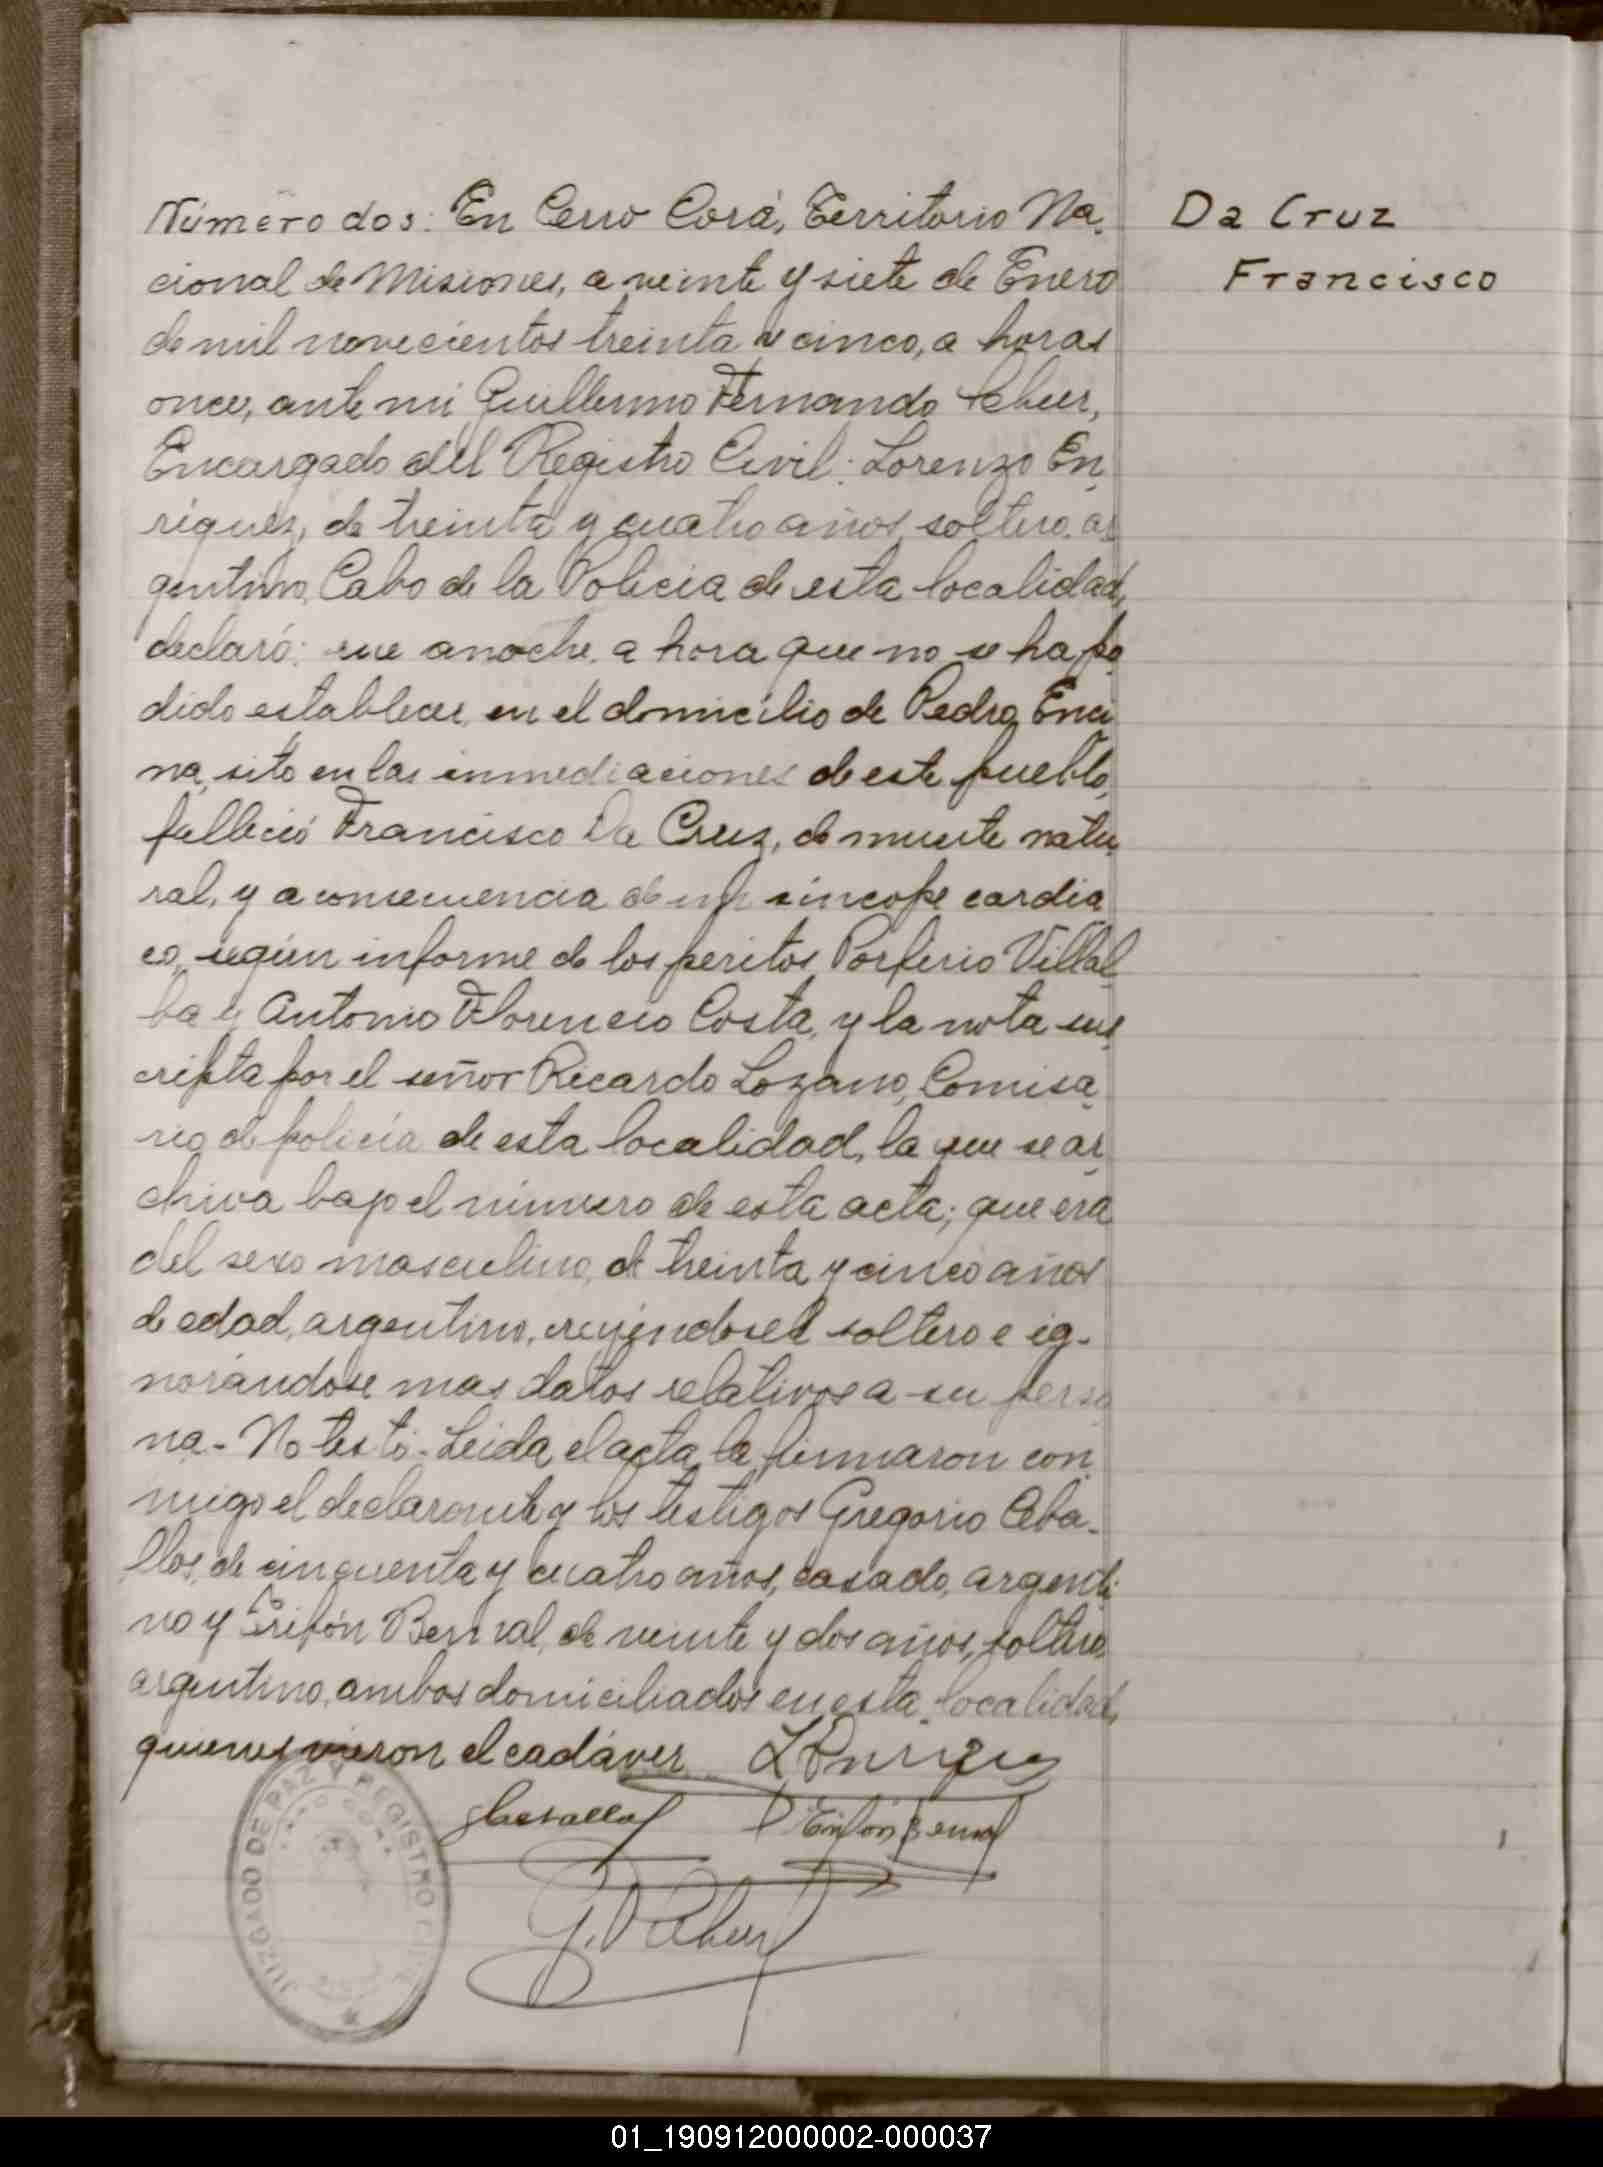 Número dos: En Cerro Corá, Territorio Na-
cional de Misiones, a veinte y siete de Enero
de mil novecientos treinta y cinco, a horas
once, ante mi Guillermo Fernando
Encargado del Registro Civil: Lorenzo En
riquez, de treinta y cuatro años, soltero, ar
gentino, Cabo de la Policia de esta localidad,
declaró: que anoche, a hora que no se ha po
dido establecer, en el domicilio de Pedro Enci
na, sito en las inmediaciones de este pueblo,
falleció Francisco Da Cruz, de muerte natu
ral, y a consecuencia de un síncope cardia
co, según informe de los peritos Porfirio Villal
ba y Antonio Florencio Costa, y la nota sus
cripta por el señor Ricardo Lozano, Comisa
rio de policía de esta localidad, la que se ar
chiva bajo el número de esta acta; que era
del sexo masculino, de treinta y cinco años
de edad, argentino, creyéndosele soltero e ig-
norándose mas datos relativos a su perso
na.- No testó.- Leida el acta, la firmaron con
migo el declarante y los testigos Gregorio Ceba-
llos, de cincuenta y cuatro años, casado, argenti-
no y Trifón Bernal, de veinte y dos años, soltero,
argentino, ambos domiciliados en esta localidad,
quienes vieron el cadáver. L Enriquez
GCeballos Trifón Bernal
JUZGADO DE PAZ Y REGISTRO CIVIL
Da Cruz
Francisco
01_190912000002-000037